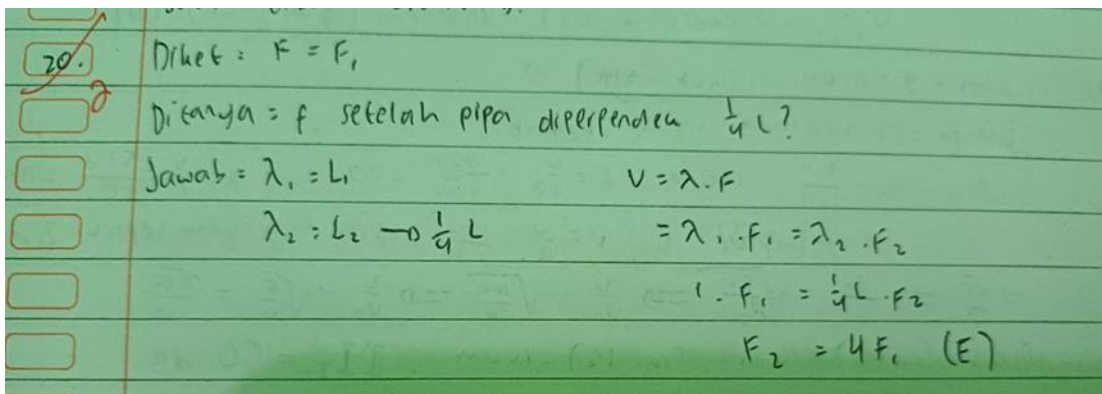 20. Diket : F = F₁
2
Ditanya = f setelah pipa diperpendek 1/4 L?
Jawab = λ₁ = L₁ V = λ.F
λ₂ = L₂ → 1/4 L = λ₁.F₁ = λ₂.F₂
1. F₁ = 1/4 L.F₂
F₂ = 4F₁ (E)